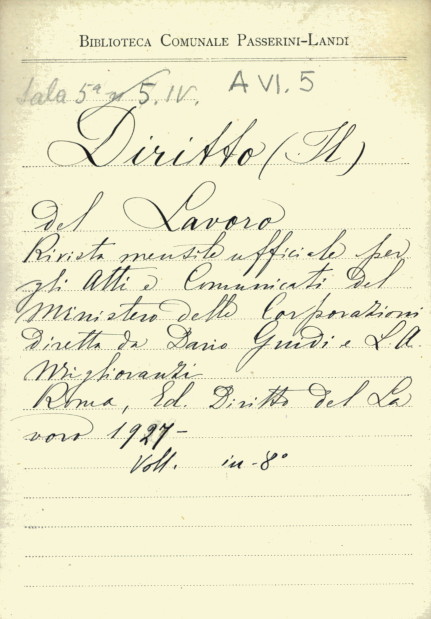 BIBLIOTECA COMUNALE PASSERINI-LANDI
Sala 5ª 5.IV. A VI. 5
Diritto (Il)
del Lavoro
Rivista mensile ufficiale per
gli Atti e Comunicati del
Ministero delle Corporazioni
Diretta da Dario Guidi e L. A.
Miglioranzi
Roma, Ed. Diritto del La
voro 1927-
Voll. in-8°